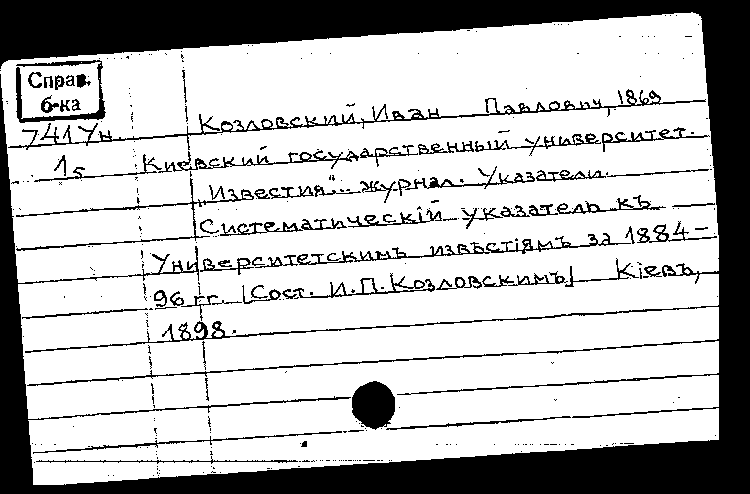 Справ.
б-ка
741 Ун.
15
Козловский, Иван Павлович, 1869
Киевский государственный университет.
„Известия“.. журнал. Указатели.
Систематическій указатель къ
Университетскимъ извѣстіямъ за 1884-
96 гг. [Сост. И.П. Козловскимъ] Кіевъ,
1898.